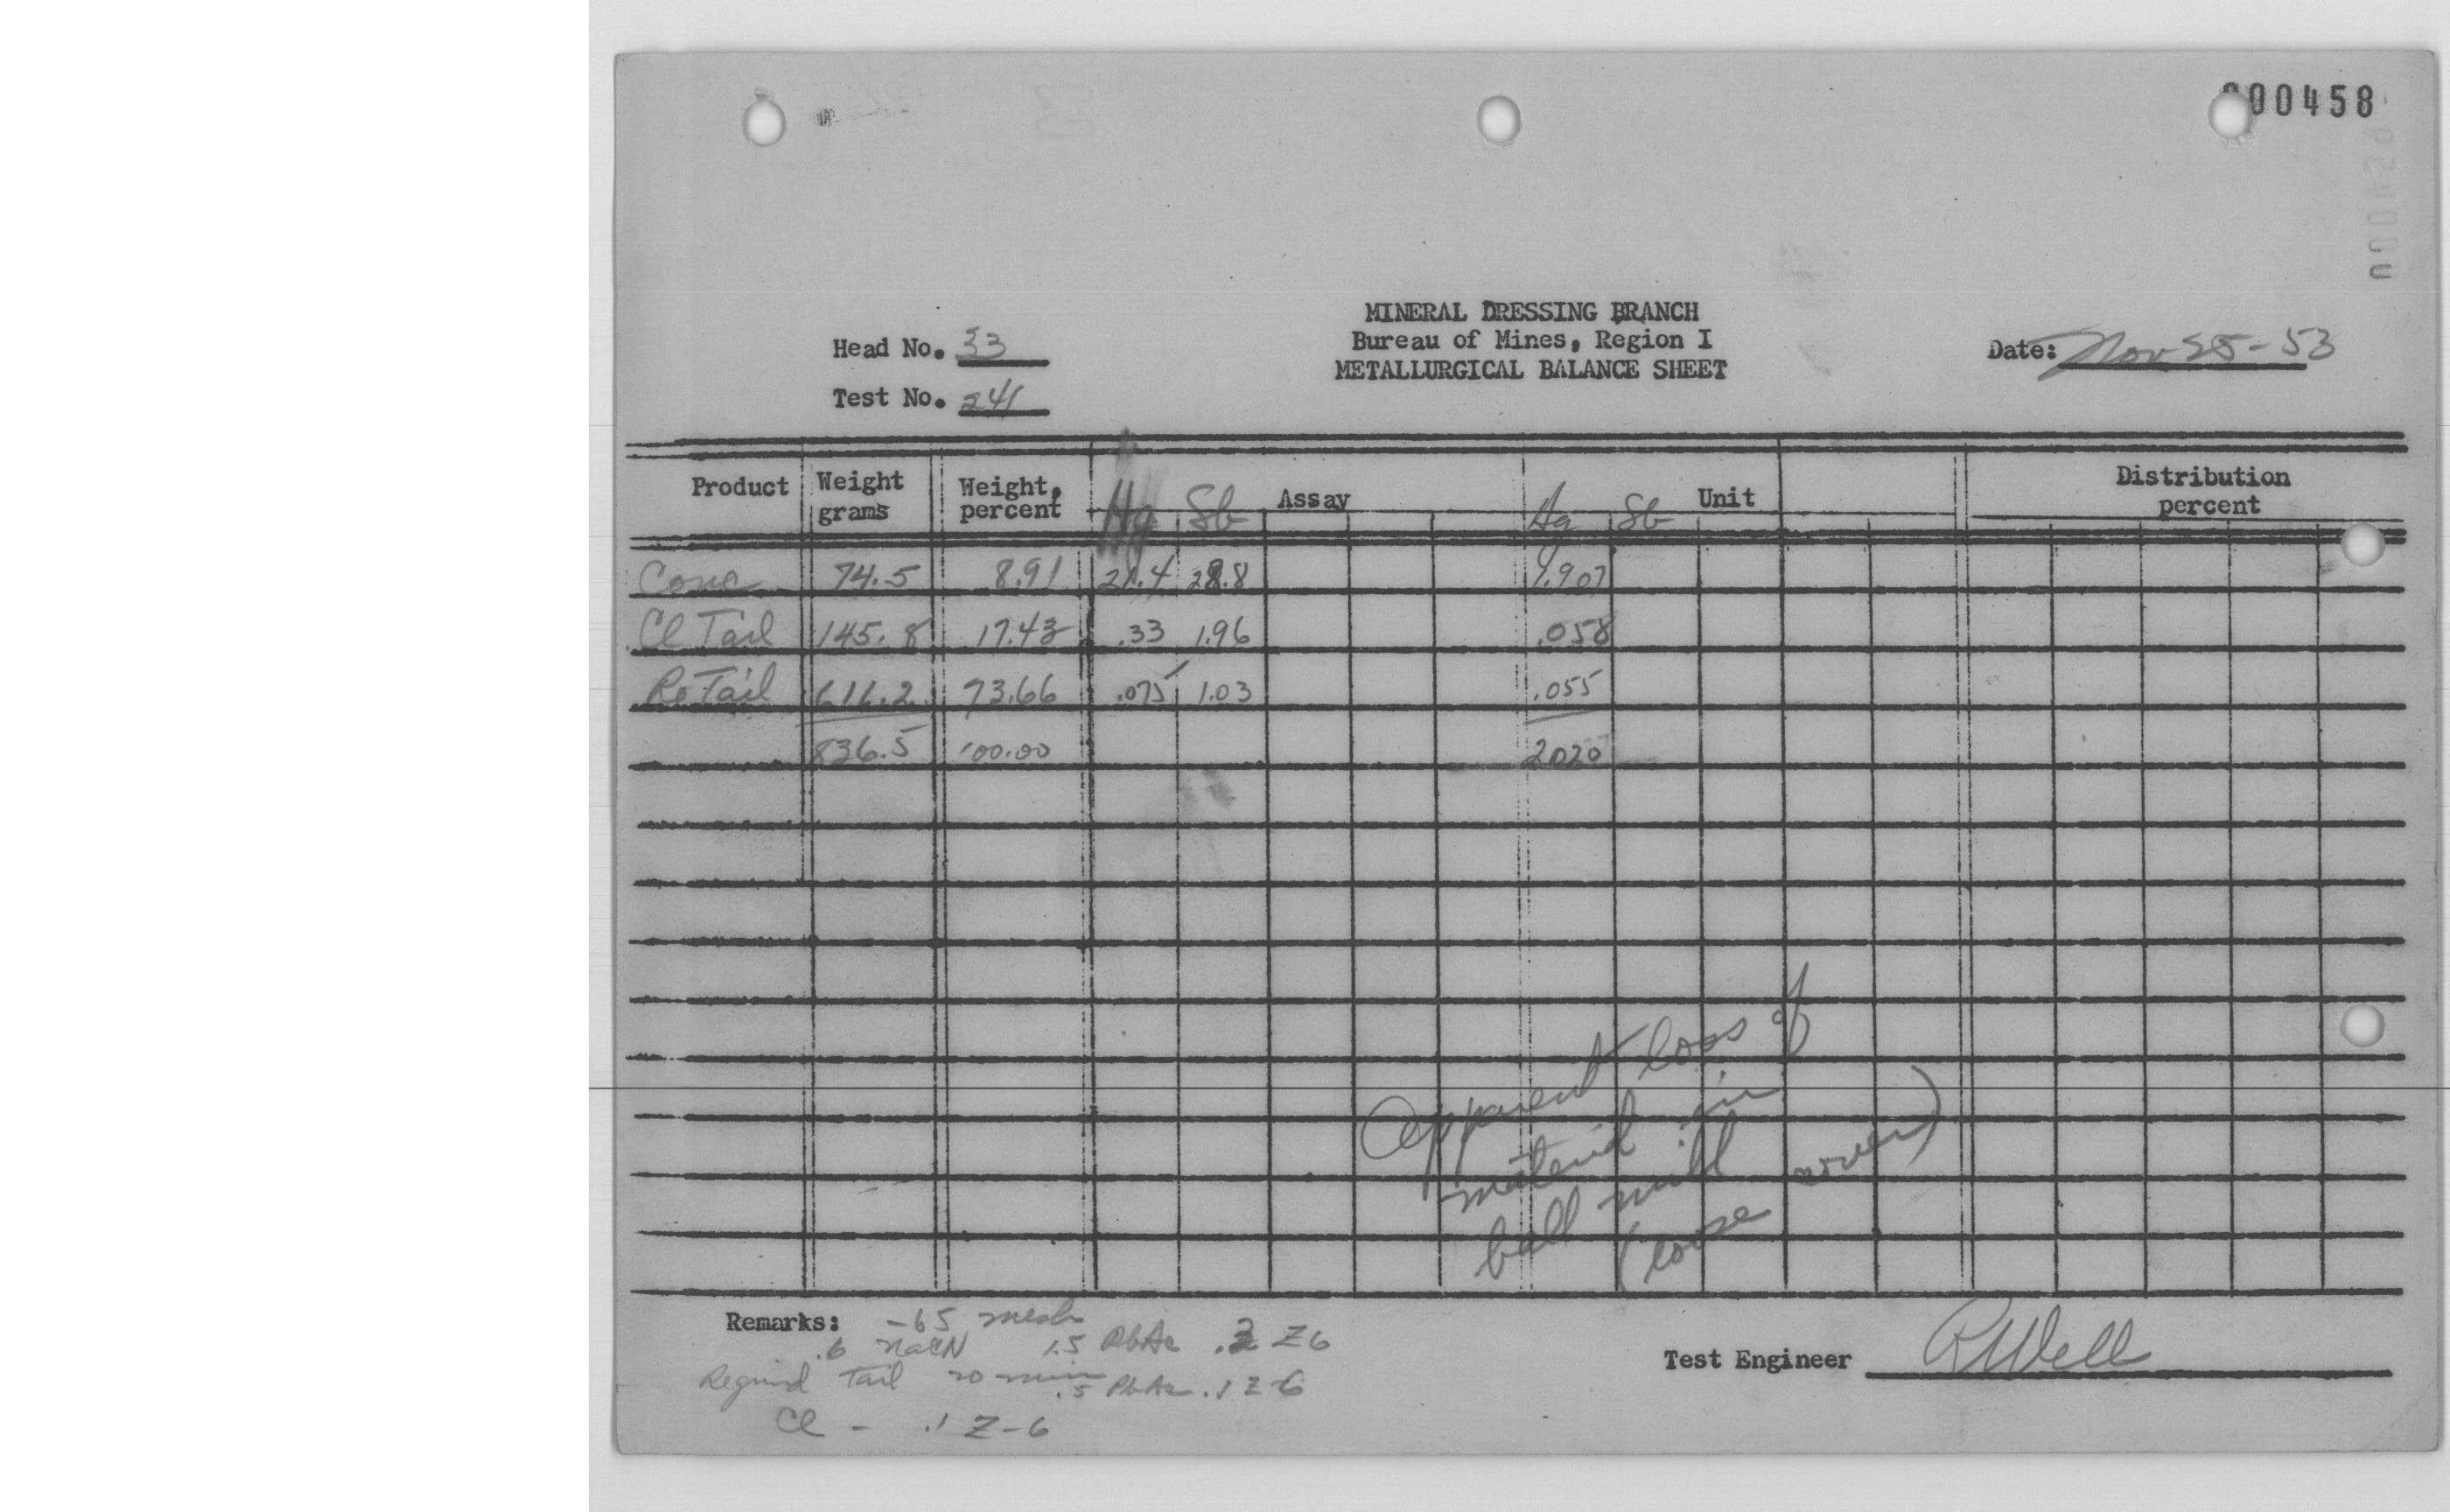 000458
MINERAL DRESSING BRANCH
Bureau of Mines, Region I
METALLURGICAL BALANCE SHEET
Head No. 33
Test No. 241
Date: Nov 25-53
Product Weight grams Weight, percent Assay Unit Distribution percent
Hg Sb Hg Sb
Conc 74.5 8.91 21.4 28.8 1.907
Cl Tail 145.8 17.43 .33 1.96 .058
Ro Tail 616.2 73.66 .075 1.03 .055
836.5 100.00 2.020
Apparent loss of
material in
ball mill
(loose cover)
Remarks: -65 mesh
.6 NaCN 1.5 PbAc .2 Z6
Regrind Tail 20 min
.5 PbAc .1 Z6
Cl - .1 Z-6
Test Engineer RWell